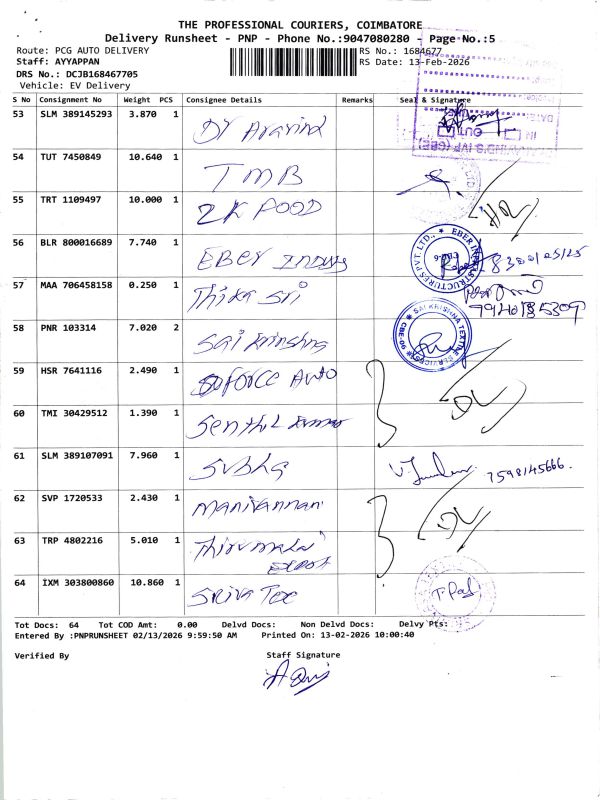 THE PROFESSIONAL COURIERS, COIMBATORE
Delivery Runsheet - PNP - Phone No.:9047080280 - Page No.:5
Route: PCG AUTO DELIVERY RS No.: 1684677
Staff: AYYAPPAN RS Date: 13-Feb-2026
DRS No.: DCJB168467705
Vehicle: EV Delivery
S No Consignment No Weight PCS Consignee Details Remarks Seal & Signature
53 SLM 389145293 3.870 1 Dr Aravind
54 TUT 7450849 10.640 1 TMB
55 TRT 1109497 10.000 1 ZK FOOD
56 BLR 800016689 7.740 1 EBER
EBER INFRASTRUCTURES PVT. LTD.,
57 MAA 706458158 0.250 1 Thika Sri
58 PNR 103314 7.020 2 Sai Krinshna
SAI KRISHNA TEXTILE
59 HSR 7641116 2.490 1 Auto
60 TMI 30429512 1.390 1 Senthil
61 SLM 389107091 7.960 1 Subha 7598145666.
62 SVP 1720533 2.430 1 Manivannan
63 TRP 4802216 5.010 1 Thirumalai
64 IXM 303800860 10.860 1 Sriva Tex
Tot Docs: 64 Tot COD Amt: 0.00 Delvd Docs: Non Delvd Docs: Delvy Pts:
Entered By :PNPRUNSHEET 02/13/2026 9:59:50 AM Printed On: 13-02-2026 10:00:40
Verified By Staff Signature